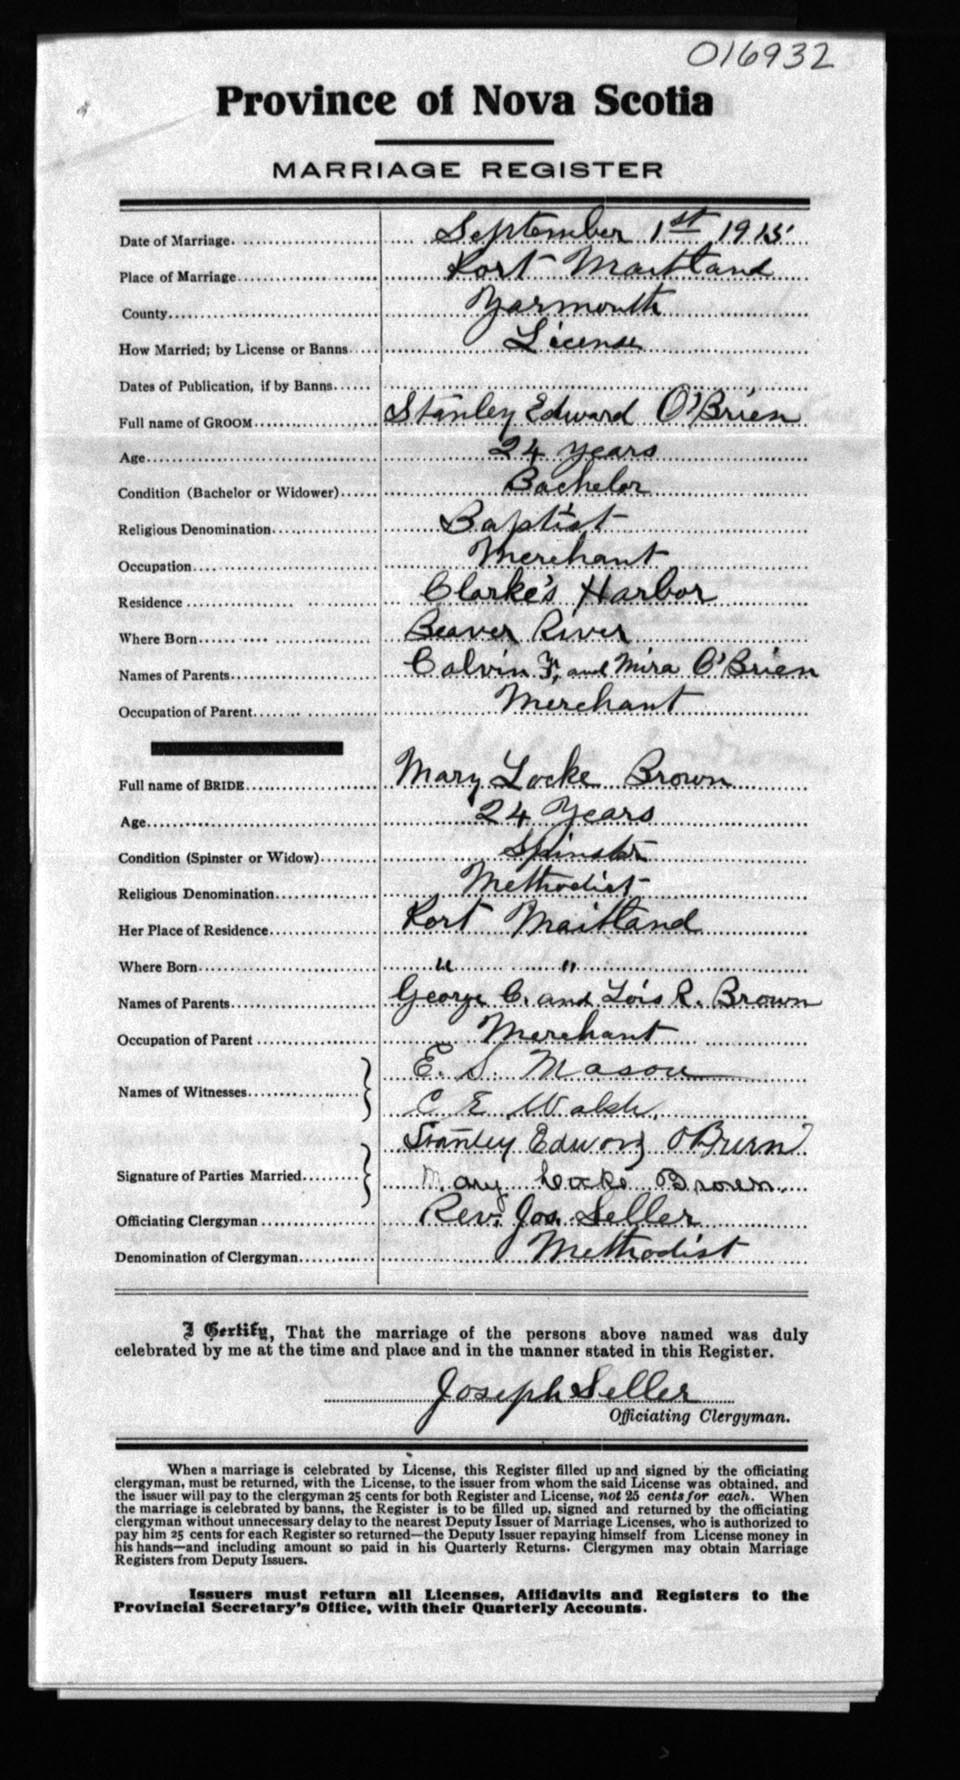 016932
Province of Nova Scotia
MARRIAGE REGISTER
Date of Marriage. September 1st 1915
Place of Marriage Port Maitland
County Yarmouth
How Married; by License or Banns License
Dates of Publication, if by Banns
Full name of GROOM Stanley Edward O'Brien
Age 24 years
Condition (Bachelor or Widower) Bachelor
Religious Denomination Baptist
Occupation Merchant
Residence Clarke's Harbor
Where Born Beaver River
Names of Parents Calvin F. and Mira O'Brien
Occupation of Parent Merchant
Full name of BRIDE Mary Locke Brown
Age 24 Years
Condition (Spinster or Widow) Spinster
Religious Denomination Methodist
Her Place of Residence Port Maitland
Where Born " "
Names of Parents George C. and Lois R. Brown
Occupation of Parent Merchant
Names of Witnesses E. S. Mason
C E Walsh
Signature of Parties Married Stanley Edward O'Brien
Mary Locke Brown
Officiating Clergyman Rev. Jos. Seller
Denomination of Clergyman Methodist
I Certify, That the marriage of the persons above named was duly
celebrated by me at the time and place and in the manner stated in this Register.
Joseph Seller
Officiating Clergyman.
When a marriage is celebrated by License, this Register filled up and signed by the officiating
clergyman, must be returned, with the License, to the issuer from whom the said License was obtained, and
the issuer will pay to the clergyman 25 cents for both Register and License, not 25 cents for each. When
the marriage is celebrated by banns, the Register is to be filled up, signed and returned by the officiating
clergyman without unnecessary delay to the nearest Deputy Issuer of Marriage Licenses, who is authorized to
pay him 25 cents for each Register so returned—the Deputy Issuer repaying himself from License money in
his hands—and including amount so paid in his Quarterly Returns. Clergymen may obtain Marriage
Registers from Deputy Issuers.
Issuers must return all Licenses, Affidavits and Registers to the
Provincial Secretary's Office, with their Quarterly Accounts.